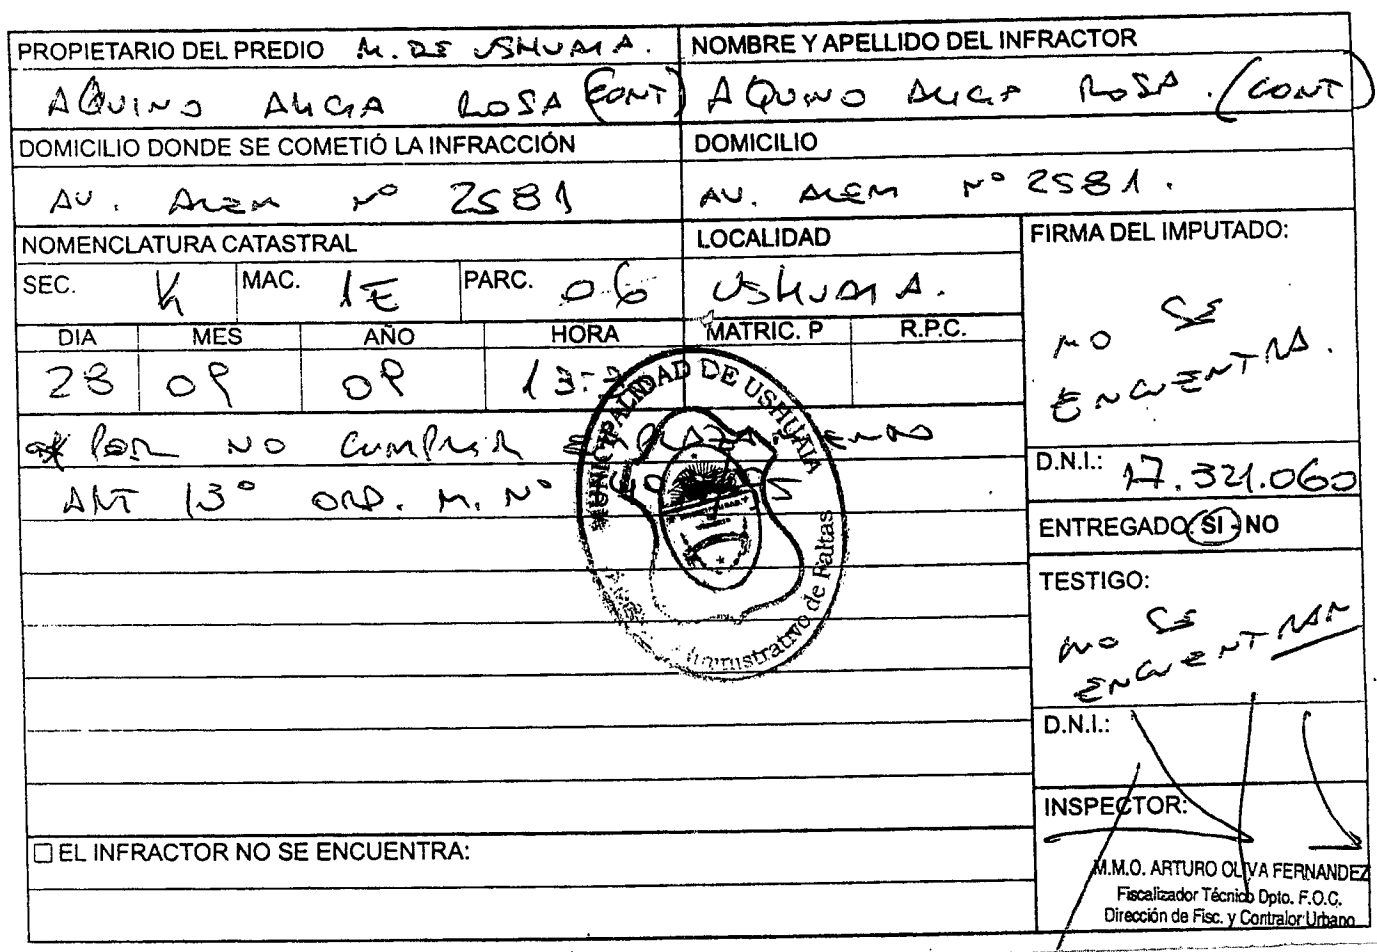 PROPIETARIO DEL PREDIO M. DE USHUAIA.
AQUINO ALICIA ROSA (CONT)
NOMBRE Y APELLIDO DEL INFRACTOR
AQUINO ALICIA ROSA. (CONT)
DOMICILIO DONDE SE COMETIÓ LA INFRACCIÓN
AV. ALEM Nº 2581
DOMICILIO
AV. ALEM Nº 2581.
NOMENCLATURA CATASTRAL
SEC. K MAC. 1E PARC. 06
LOCALIDAD
USHUAIA.
DIA MES AÑO HORA MATRIC. P R.P.C.
28 09 09 13:
* POR NO CUMPLIR
ART 13º ORD. M. Nº
MUNICIPALIDAD DE USHUAIA
Administrativo de Faltas
EL INFRACTOR NO SE ENCUENTRA:
FIRMA DEL IMPUTADO:
NO SE
ENCUENTRA.
D.N.I.: 17.321.060
ENTREGADO SI - NO
TESTIGO:
NO SE
ENCUENTRAN
D.N.I.:
INSPECTOR:
M.M.O. ARTURO OLIVA FERNANDEZ
Fiscalizador Técnico Dpto. F.O.C.
Dirección de Fisc. y Contralor Urbano